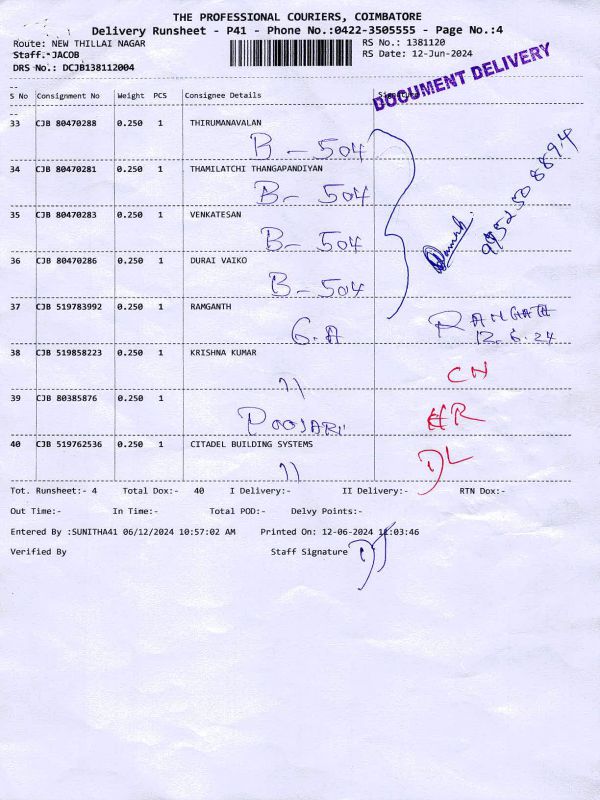 THE PROFESSIONAL COURIERS, COIMBATORE
Delivery Runsheet - P41 - Phone No.:0422-3505555 - Page No.:4
Route: NEW THILLAI NAGAR RS No.: 1381120
Staff.-JACOB RS Date: 12-Jun-2024
DRS No.: DCJB138112004
DOCUMENT DELIVERY
S No Consignment No Weight PCS Consignee Details Signature
33 CJB 80470288 0.250 1 THIRUMANAVALAN
B - 504
34 CJB 80470281 0.250 1 THAMILATCHI THANGAPANDIYAN
B - 504
35 CJB 80470283 0.250 1 VENKATESAN
B - 504
36 CJB 80470286 0.250 1 DURAI VAIKO
B - 504
37 CJB 519783992 0.250 1 RAMGANTH
G.A
12.6.24
38 CJB 519858223 0.250 1 KRISHNA KUMAR
CN
39 CJB 80385876 0.250 1
POOJARI
HR
40 CJB 519762536 0.250 1 CITADEL BUILDING SYSTEMS
DL
Tot. Runsheet:- 4 Total Dox:- 40 I Delivery:- II Delivery:- RTN Dox:-
Out Time:- In Time:- Total POD:- Delvy Points:-
Entered By :SUNITHA41 06/12/2024 10:57:02 AM Printed On: 12-06-2024 11:03:46
Verified By Staff Signature